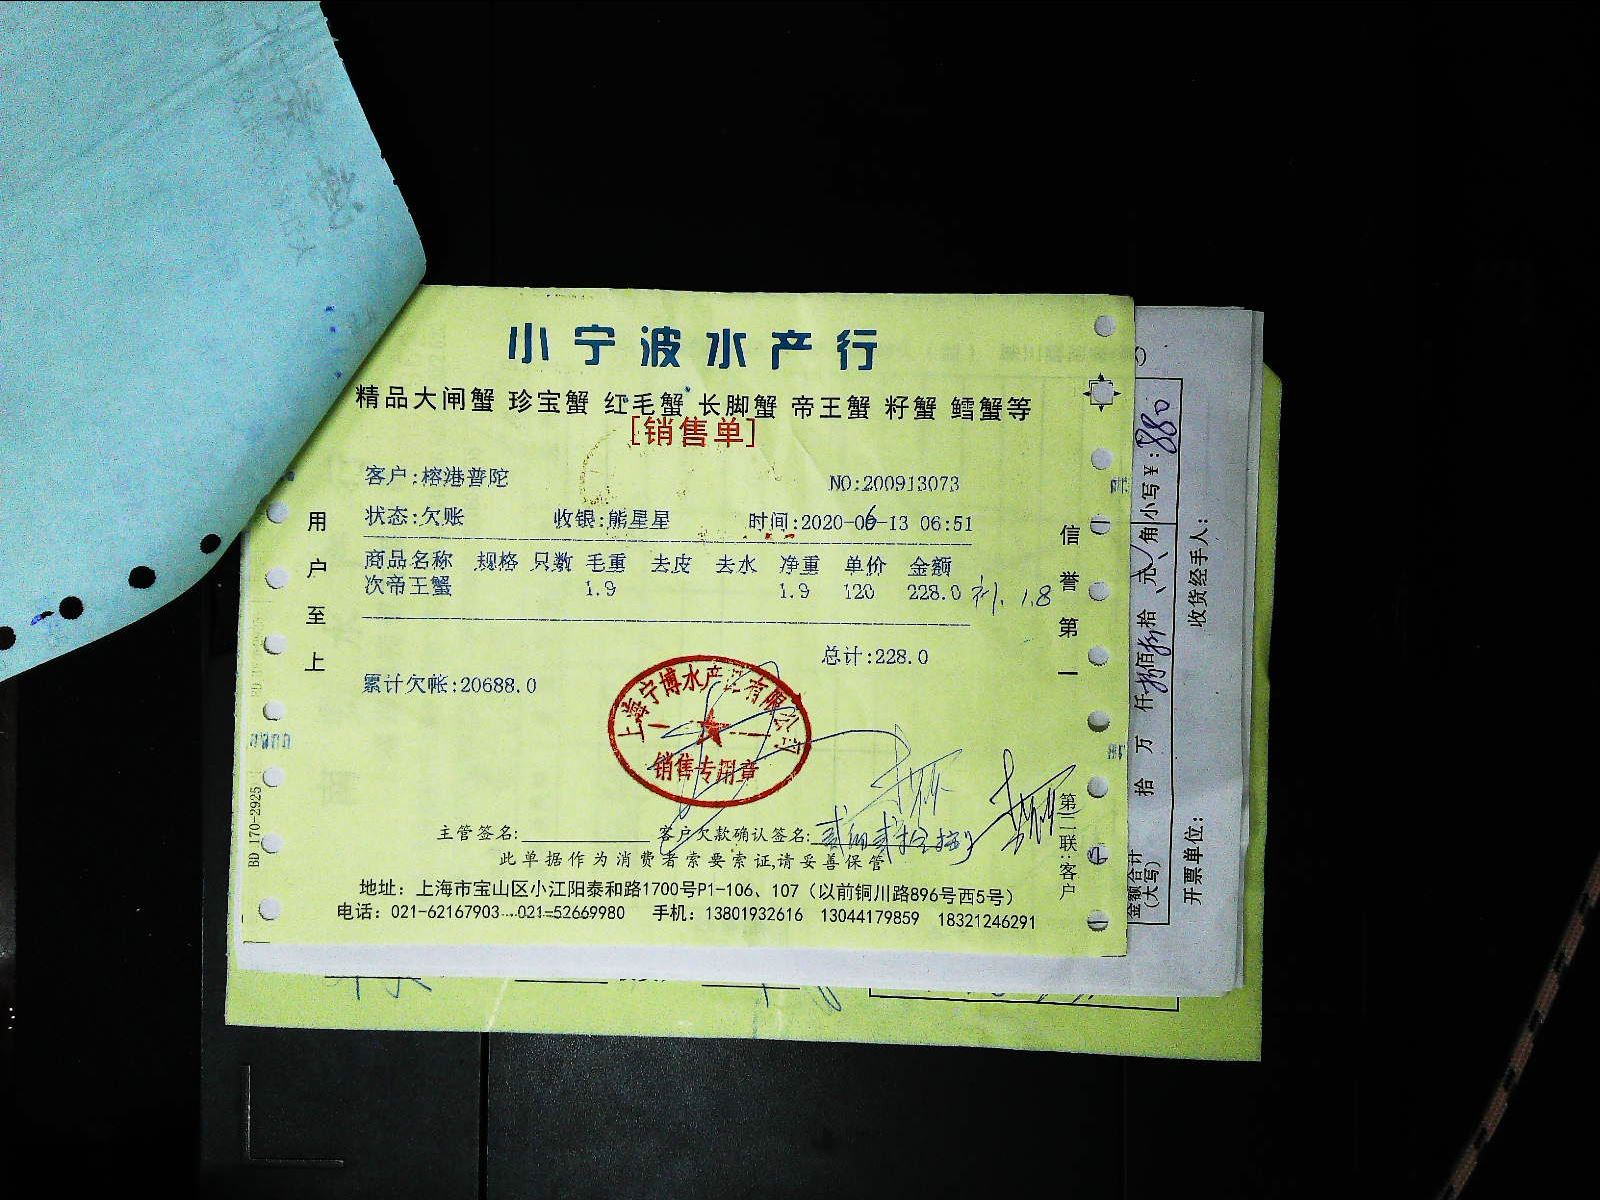 小宁波水产行
精品大闸蟹 珍宝蟹 红毛蟹 长脚蟹 帝王蟹 籽蟹 鳕蟹等
[销售单]
客户:榕港普陀 NO:200913073
状态:欠账 收银:熊星星 时间:2020-06-13 06:51
商品名称 规格 只数 毛重 去皮 去水 净重 单价 金额
次帝王蟹 1.9 1.9 120 228.0 1.8
总计:228.0
累计欠帐:20688.0
用户至上
信誉第一
上海宁博水产 有限公司
销售专用章
主管签名: 客户欠款确认签名:
此单据作为消费者索要索证,请妥善保管
地址：上海市宝山区小江阳泰和路1700号P1-106、107（以前铜川路896号西5号）
电话：021-62167903 021-52669980 手机：13801932616 13044179859 18321246291
第二联:客户
BD 170-2925
金额合计(大写) 拾 万 仟 佰 拾 元 角 小写￥:880
开票单位: 收货经手人: